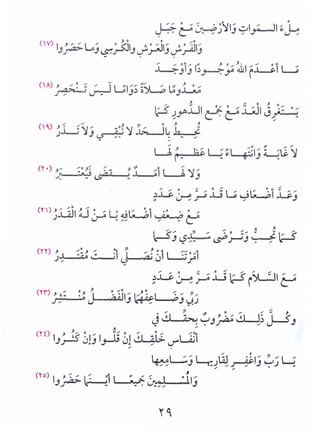 مِلْءَ السمَواتِ وَالأرْضِينَ مَعْ جَبَلٍ
وَالْفَرْشِ وَالْعَرْشِ وَالْكُرْسِي وَما حَصَرُوا (١٧)
مَا أعْدَمَ اللهُ مَوْجُودًا وَأوْجَدَ
مَعْدُومًا صَلَاةً دَوَامًا لَيسَ تَنْحَصِرُ (١٨)
يَسْتَغرِقُ الْعَدَّ مَعْ جَمْعِ الدُّهورِ كَمَا
تُحِيطُ بِالْحَدِّ لاَ تُبْقِي وَلاَ تَذَرُ (١٩)
لاَ غَايَةً وَانْتِهاءً يَا عَظِيمُ لَهَا
وَلا لَهَا أمَدٌ يُقضَى فَيُعْتَبَرُ (٢٠)
وَعَدَّ أضْعَافِ مَا قَدْ مَرَّ مِنْ عَدَدٍ
مَعْ ضِعْفِ أضْعَافِهِ يَا مَنْ لَهُ الْقَدَرُ (٢١)
كَمَا تُحِبُّ وَتَرْضَى سَيِّدِي وَكَمَا
أمَرْتَنَا أنْ نُصَلِّيَ أنْتَ مُقْتَدِرُ (٢٢)
مَعَ السَّلاَمِ كَمَا قَدْ مَرَّ مِنْ عَدَدٍ
رَبِّي وَضَاعِفْهُمَا وَالْفَضْلُ مُنْتَشِرُ (٢٣)
وَكُلُّ ذلِكَ مَضْرُوبٌ بِحَقِّكَ فِي
أنْفَاسِ خَلْقِكَ إنْ قَلُّوا وَإنْ كَثُرُوا (٢٤)
يَا رَبِّ وَاغْفِرْ لِقَارِيهَا وَسَامِعِهَا
وَالْمُسْلِمِينَ جَمِيعًا أيْنَمَا حَضَرُوا (٢٥)
٢٩